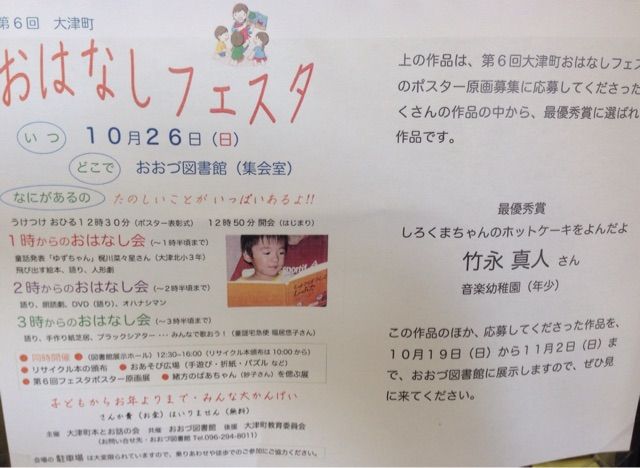 第6回 大津町
おはなしフェスタ
いつ 10月26日（日）
どこで おおづ図書館（集会室）
なにがあるの たのしいことが いっぱいあるよ!!
うけつけ おひる12時30分（ポスター表彰式） 12時50分 開会（はじまり）
1時からのおはなし会（～1時半頃まで）
童話発表「ゆずちゃん」梶川菜々星さん（大津北小3年）
飛び出す絵本、語り、人形劇
2時からのおはなし会（～2時半頃まで）
語り、朗読劇、DVD（語り）、オハナシマン
3時からのおはなし会（～3時半頃まで）
語り、手作り紙芝居、ブラックシアター・・・みんなで歌おう！（童謡宅急便 福居悠子さん）
● 同時開催 ● （図書館展示ホール）12:30~16:00（リサイクル本頒布は10:00から）
● リサイクル本の頒布 ● おあそび広場（手遊び・折紙・パズル など）
● 第6回フェスタポスター原画展 ● 緒方のばあちゃん（妙子さん）を偲ぶ展
子どもからお年よりまで・みんな大かんげい
さんか費（お金）はいりません（無料）
主催 大津町本とお話の会 共催 おおづ図書館 後援 大津町教育委員会
（お問い合せ先・おおづ図書館 Tel.096-294-8011）
会場の 駐車場 は大変限られていますので、乗りあわせや徒歩でのご参加にご協力ください。
上の作品は、第6回大津町おはなしフェス
のポスター原画募集に応募してくださった
くさんの作品の中から、最優秀賞に選ばれ
作品です。
最優秀賞
しろくまちゃんのホットケーキをよんだよ
竹永 真人 さん
音楽幼稚園（年少）
この作品のほか、応募してくださった作品を、
10月19日（日）から11月2日（日）ま
で、おおづ図書館に展示しますので、ぜひ見
に来てください。